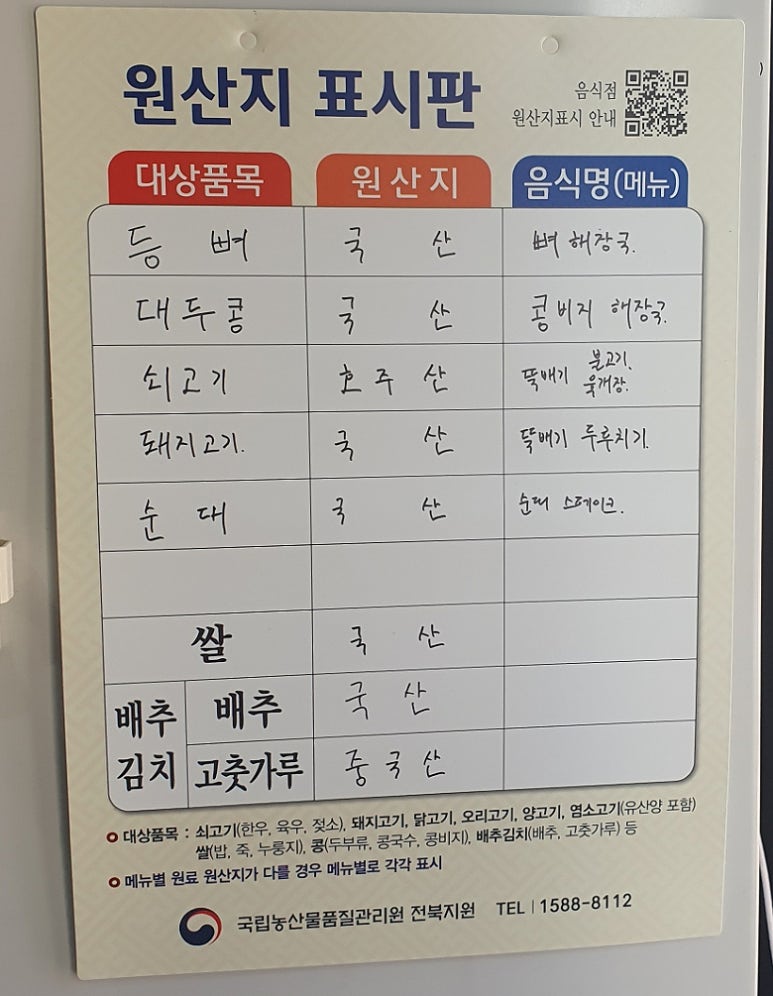 원산지 표시판
음식점
원산지표시 안내
대상품목 원산지 음식명(메뉴)
등 뼈 국 산 뼈 해장국.
대두콩 국 산 콩비지 해장국.
쇠고기 호주산 뚝배기 불고기.
육개장.
돼지고기. 국 산 뚝배기 두루치기.
순 대 국 산 순대 스테이크.
쌀 국 산
배추 배추 국 산
김치 고춧가루 중국산
대상품목 : 쇠고기(한우, 육우, 젖소), 돼지고기, 닭고기, 오리고기, 양고기, 염소고기(유산양 포함)
쌀(밥, 죽, 누룽지), 콩(두부류, 콩국수, 콩비지), 배추김치(배추, 고춧가루) 등
메뉴별 원료 원산지가 다를 경우 메뉴별로 각각 표시
국립농산물품질관리원 전북지원 TEL | 1588-8112